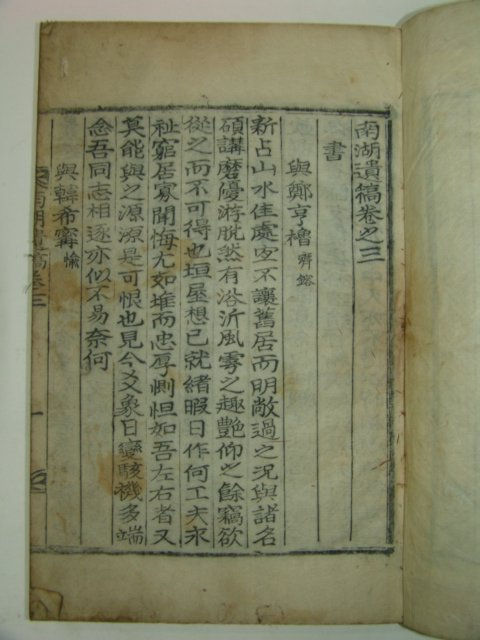 南湖遺稿卷之三
書
與鄭亨櫓 齊鎔
新占山水佳處定不讓舊居而明敞過之況與諸名
碩講磨優游脫然有浴沂風雩之趣艶仰之餘竊欲
從之而不可得也垣屋想已就緖暇日作何工夫求
祉窮居寡聞悔尤如堆而忠厚惻怛如吾左右者又
莫能與之源源是可恨也見今爻象日變駭機多端
念吾同志相逐亦似不易奈何
與韓希甯 愉
南湖遺稿卷三
一